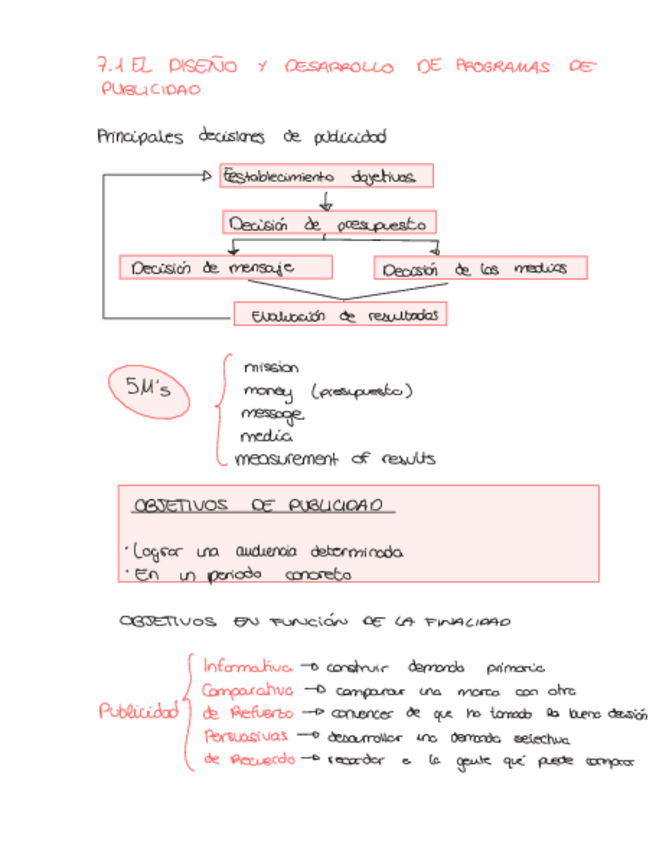 7.1 EL DISEÑO Y DESARROLLO DE PROGRAMAS DE
PUBLICIDAD
Principales decisiones de publicidad
Establecimiento objetivos
Decisión de presupuesto
Decisión de mensaje
Decisión de los medios
Evaluación de resultados
5M's
mission
money (presupuesto)
message
media
measurement of results
OBJETIVOS DE PUBLICIDAD
· Lograr una audiencia determinada
· En un periodo concreto
OBJETIVOS EN FUNCIÓN DE LA FINALIDAD
Publicidad
Informativa → construir demanda primaria
Comparativa → comparar una marca con otra
de Refuerzo → convencer de que ha tomado la buena decisión
Persuasivas → desarrollar una demanda selectiva
de Recuerdo → recordar a la gente qué puede comprar